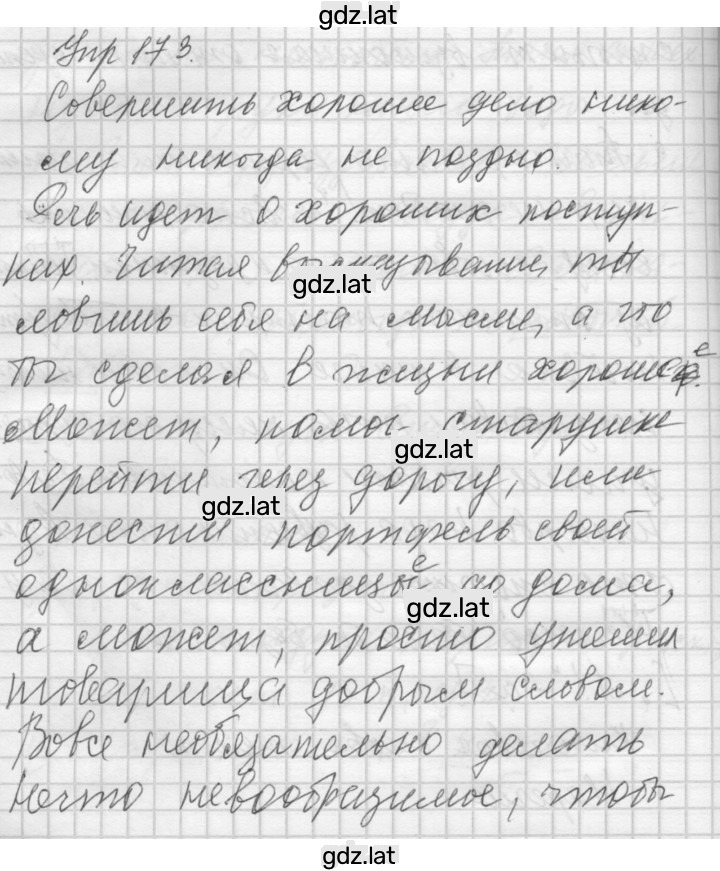 gdz.lat
Упр 173.
Совершить хорошее дело нико-
му никогда не поздно.
Речь идет о хороших поступ-
ках. Читая высказывание, ты
gdz.lat
ловишь себя на мысли, а что
ты сделал в жизни хорошее.
Может, помог старушке
gdz.lat
перейти через дорогу, или
gdz.lat
донести портфель своей
однокласснице до дома,
gdz.lat
а может, просто утешил
товарища добрым словом.
Вовсе необязательно делать
нечто невообразимое, чтобы
gdz.lat